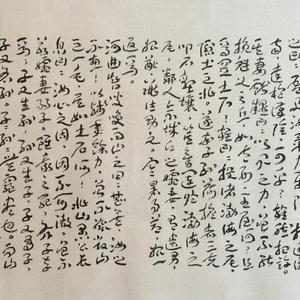 南達于漢陰可乎雜然相許其
妻獻疑曰以君之力曾不能
損魁父之丘如太行王屋何且
焉置土石雜曰投諸渤海之尾
隱土之北遂率子孫荷擔者三夫
叩石墾壤箕畚運於渤海之
尾鄰人京城氏之孀妻有遺男
始齔跳往助之寒暑易節始一
反焉
河曲智叟笑而止之曰甚矣汝之
不惠以殘年餘力曾不能毀山
之一毛其如土石何北山愚公長
息曰汝心之固固不可徹曾不
若孀妻弱子雖我之死有子存
焉子又生孫孫又生子子又有子
子又有孫子子孫孫無窮匱也而山